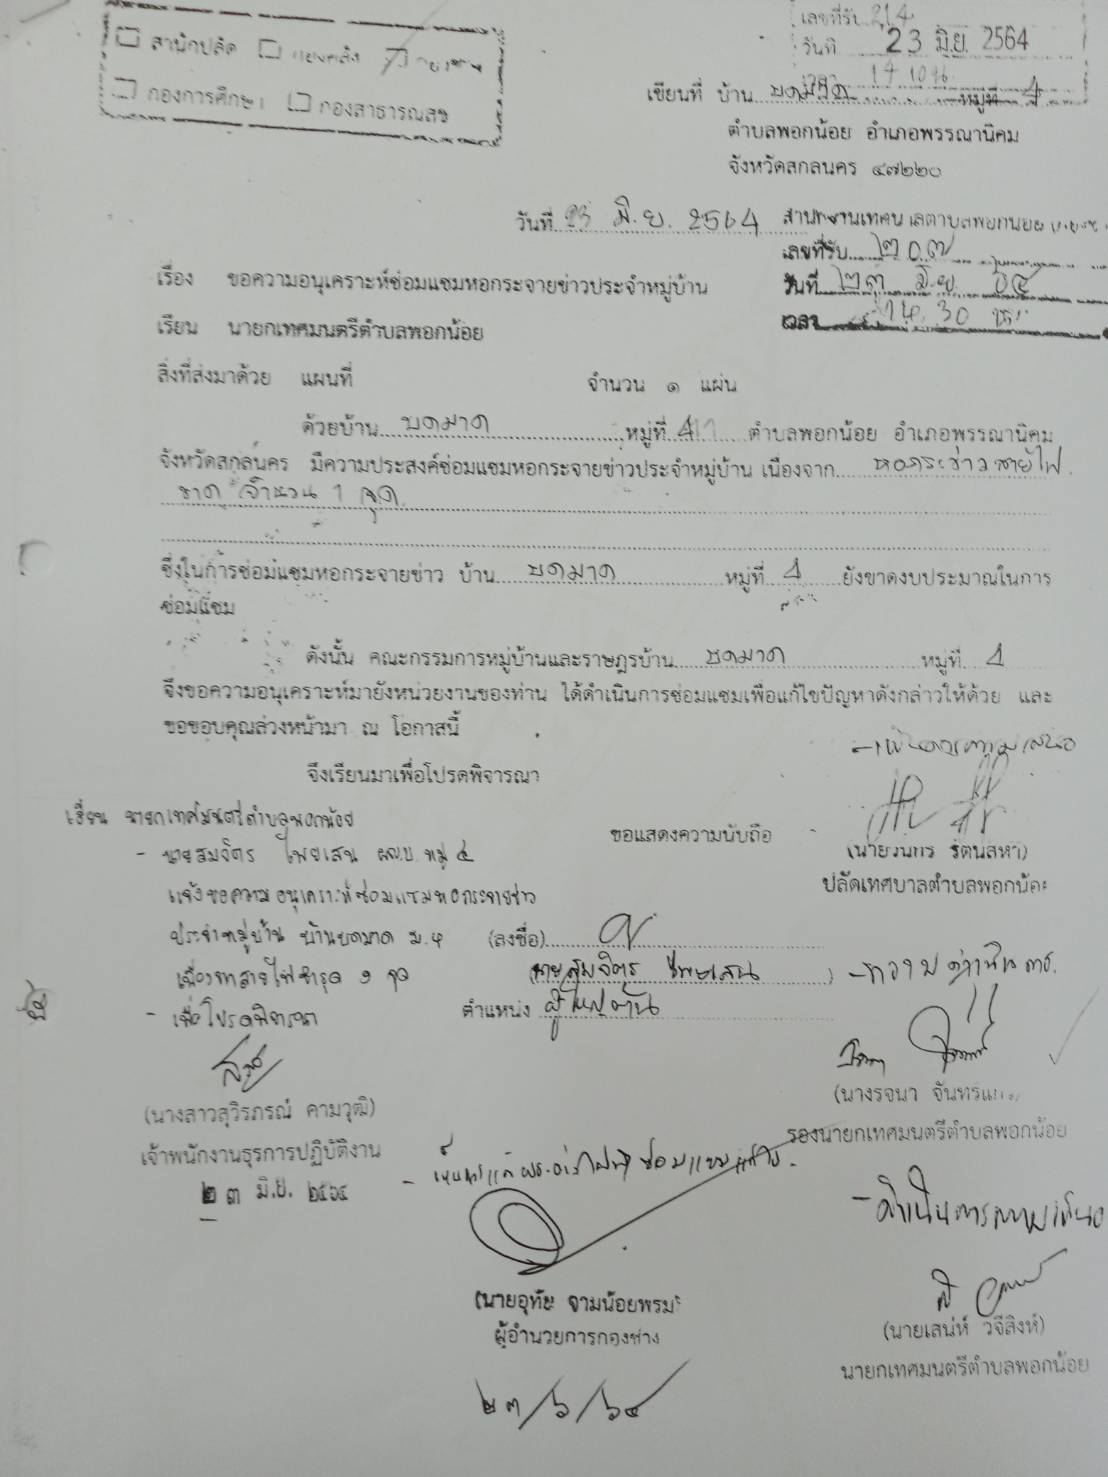 สำนักปลัด กองคลัง กองช่าง
กองการศึกษา กองสาธารณสุข
เลขที่รับ 214
วันที่ 23 มิ.ย. 2564
เขียนที่ บ้าน บดมาด หมู่ที่ 4
ตำบลพอกน้อย อำเภอพรรณานิคม
จังหวัดสกลนคร ๔๗๒๒๐
วันที่ 23 มิ.ย. 2564
สำนักงานเทศบาลตำบลพอกน้อย
เลขที่รับ ๒๐๗
วันที่ ๒๓ มิ.ย. ๖๔
เวลา 14.30 น.
เรื่อง ขอความอนุเคราะห์ซ่อมแซมหอกระจายข่าวประจำหมู่บ้าน
เรียน นายกเทศมนตรีตำบลพอกน้อย
สิ่งที่ส่งมาด้วย แผนที่ จำนวน ๑ แผ่น
ด้วยบ้าน บดมาด หมู่ที่ 4 ตำบลพอกน้อย อำเภอพรรณานิคม
จังหวัดสกลนคร มีความประสงค์ซ่อมแซมหอกระจายข่าวประจำหมู่บ้าน เนื่องจาก หอกระข่าวสายไฟ
ขาด จำนวน 1 จุด
ซึ่งในการซ่อมแซมหอกระจายข่าว บ้าน บดมาด หมู่ที่ 4 ยังขาดงบประมาณในการ
ซ่อมแซม
ดังนั้น คณะกรรมการหมู่บ้านและราษฎรบ้าน บดมาด หมู่ที่ 4
จึงขอความอนุเคราะห์มายังหน่วยงานของท่าน ได้ดำเนินการซ่อมแซมเพื่อแก้ไขปัญหาดังกล่าวให้ด้วย และ
ขอขอบคุณล่วงหน้ามา ณ โอกาสนี้
จึงเรียนมาเพื่อโปรดพิจารณา
- เห็นควรตามเสนอ
ขอแสดงความนับถือ
(นายวันทร รัตนสหา)
ปลัดเทศบาลตำบลพอกน้อย
เรียน นายกเทศมนตรีตำบลพอกน้อย
- นายสมจิตร ไพยเสน ผญ.บ. หมู่ ๔
แจ้งขอความอนุเคราะห์ซ่อมแซมหอกระจายข่าว
ประจำหมู่บ้าน บ้านบดมาด ม.๔
เนื่องจากสายไฟชำรุด ๑ จุด
- เพื่อโปรดพิจารณา
(นางสาวสุวิรภรณ์ คามวุฒิ)
เจ้าพนักงานธุรการปฏิบัติงาน
๒๓ มิ.ย. ๒๕๖๔
(ลงชื่อ)
(นายสมจิตร ไพยเสน)
ตำแหน่ง ผู้ใหญ่บ้าน
ดำเนินการ
(นางรจนา
รองนายกเทศมนตรีตำบลพอกน้อย
ซ่อมแซมแก้ไข
(นายอุทัย จามน้อยพรม)
ผู้อำนวยการกองช่าง
๒๓/๖/๖๔
- ดำเนินการตามเสนอ
(นายเสน่ห์ วจีสิงห์)
นายกเทศมนตรีตำบลพอกน้อย